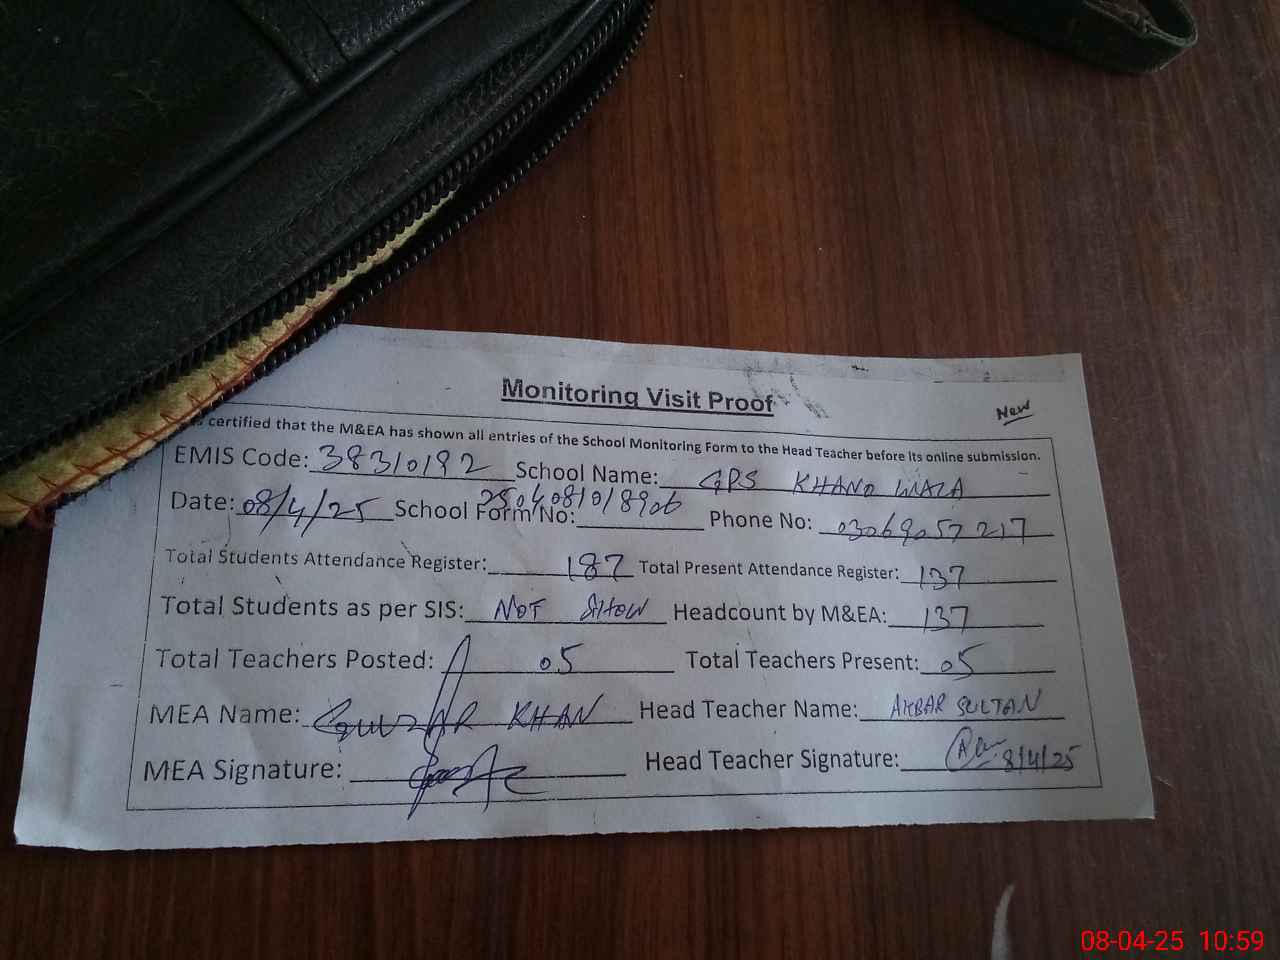 Monitoring Visit Proof
New
certified that the M&EA has shown all entries of the School Monitoring Form to the Head Teacher before its online submission.
EMIS Code: 38310192 School Name: GPS KHANO WALA
Date: 08/4/25 School Form No: 2504081018906 Phone No: 03069057217
Total Students Attendance Register: 187 Total Present Attendance Register: 137
Total Students as per SIS: NOT SHOW Headcount by M&EA: 137
Total Teachers Posted: 05 Total Teachers Present: 05
MEA Name: GULZAR KHAN Head Teacher Name: AKBAR SULTAN
MEA Signature: Head Teacher Signature: 8/4/25
08-04-25 10:59